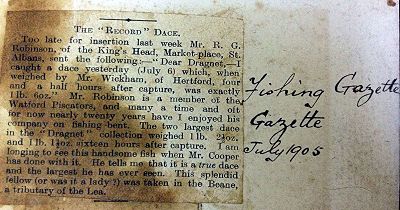 THE "RECORD" DACE.
Too late for insertion last week Mr. R. G.
Robinson, of the King's Head, Market-place, St.
Albans, sent the following:—"Dear Dragnet,—I
caught a dace yesterday (July 6) which, when
weighed by Mr. Wickham, of Hertford, four
and a half hours after capture, was exactly
1lb. 6oz." Mr. Robinson is a member of the
Watford Piscators, and many a time and oft
for now nearly twenty years have I enjoyed his
company on fishing-bent. The two largest dace
in the "Dragnet" collection weighed 1lb. 2½oz.
and 1lb. 1¾oz. sixteen hours after capture. I am
longing to see this handsome fish when Mr. Cooper
has done with it. He tells me that it is a true dace
and the largest he has ever seen. This splendid
fellow (or was it a lady?) was taken in the Beane,
a tributary of the Lea.
Fishing Gazette
Gazette
July 1905